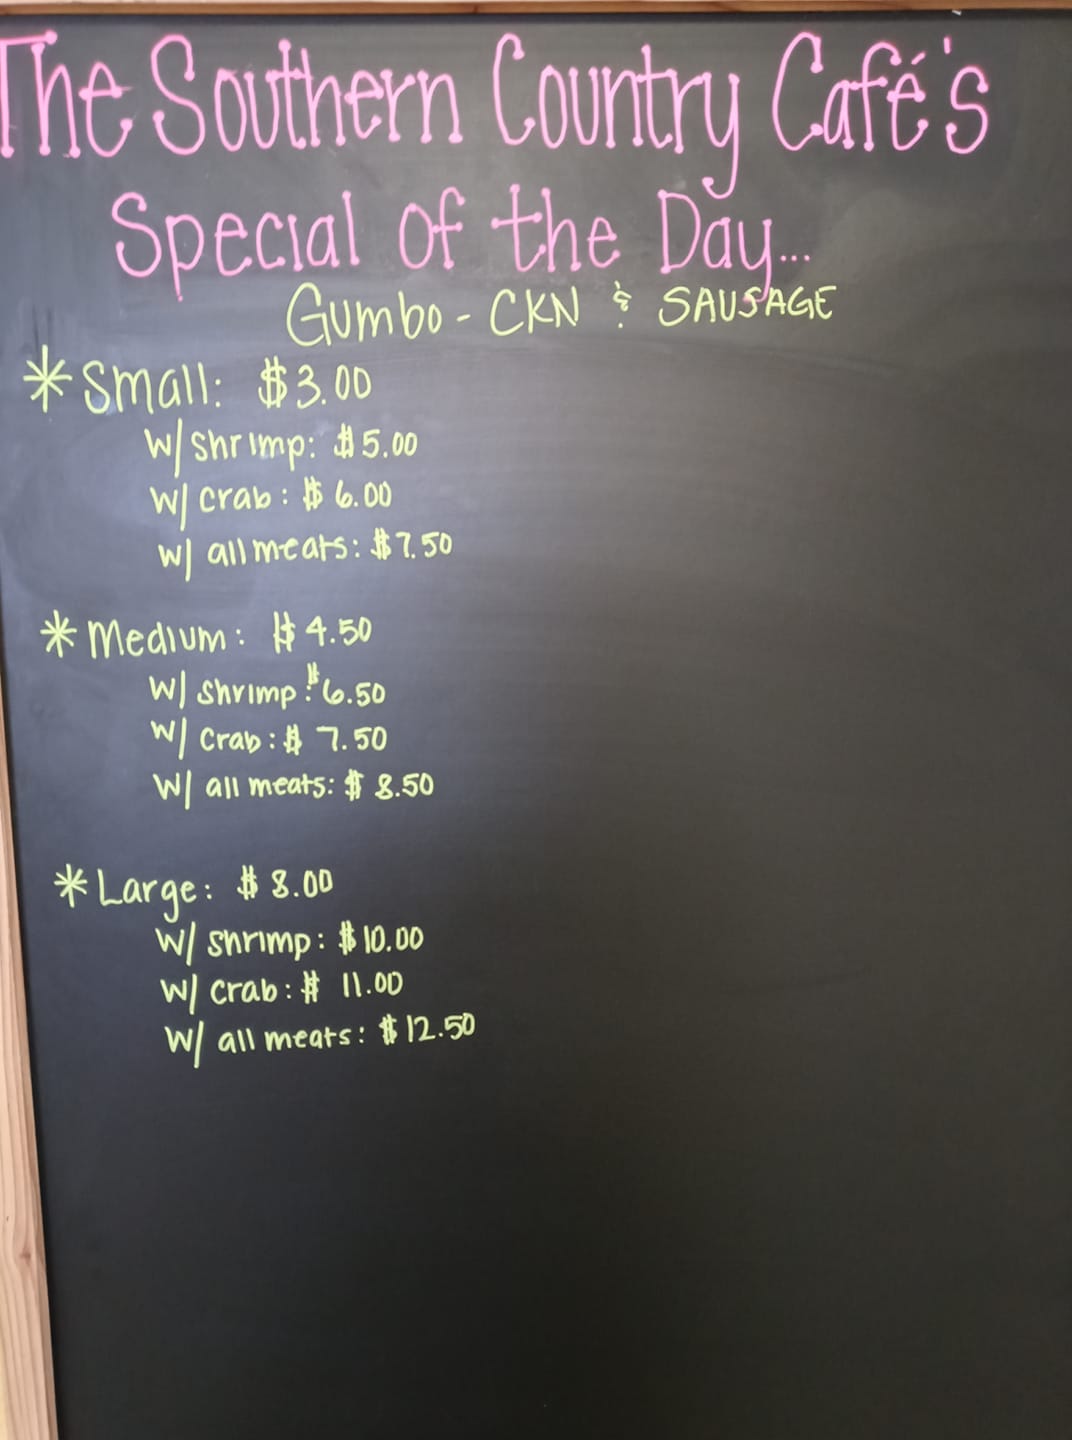 The Southern Country Café's
Special of the Day...
Gumbo - CKN & SAUSAGE
* Small: $3.00
W/ shrimp: $5.00
W/ crab: $6.00
W/ all meats: $7.50
* Medium: $4.50
W/ shrimp: $6.50
W/ crab: $7.50
W/ all meats: $8.50
* Large: $8.00
W/ shrimp: $10.00
W/ crab: $11.00
W/ all meats: $12.50